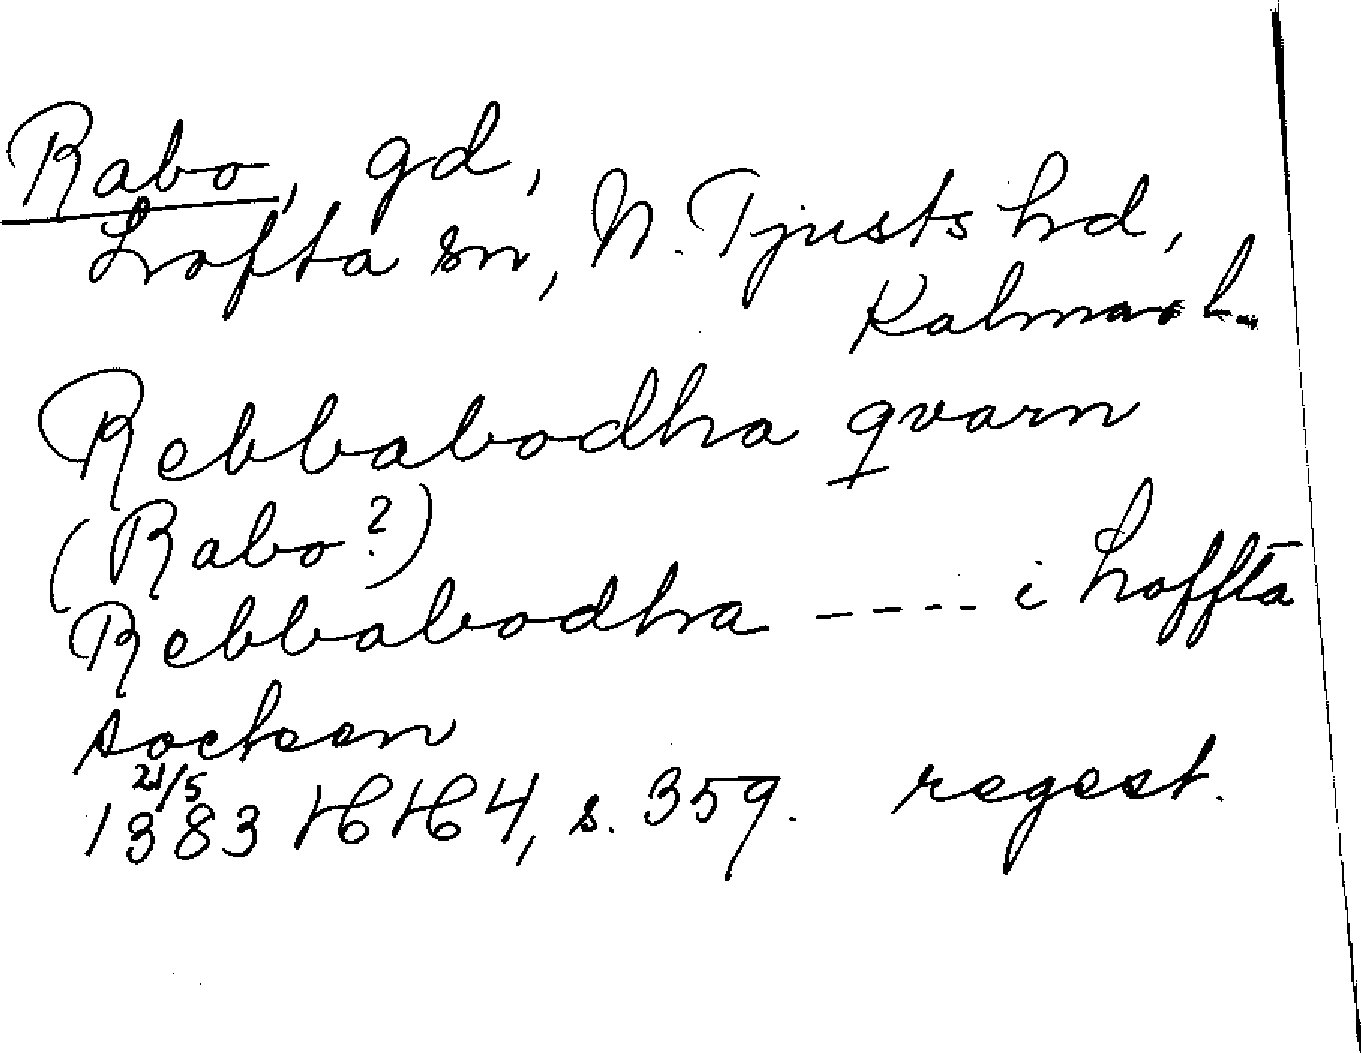 Rabo, gd,
Lofta sn, N. Tjusts hd,
Kalmar l.
Rebbabodha qvarn
(Rabo?)
Rebbabodha ---- i Loffta
socken
21/5
1383 HH 4, s. 359. regest.